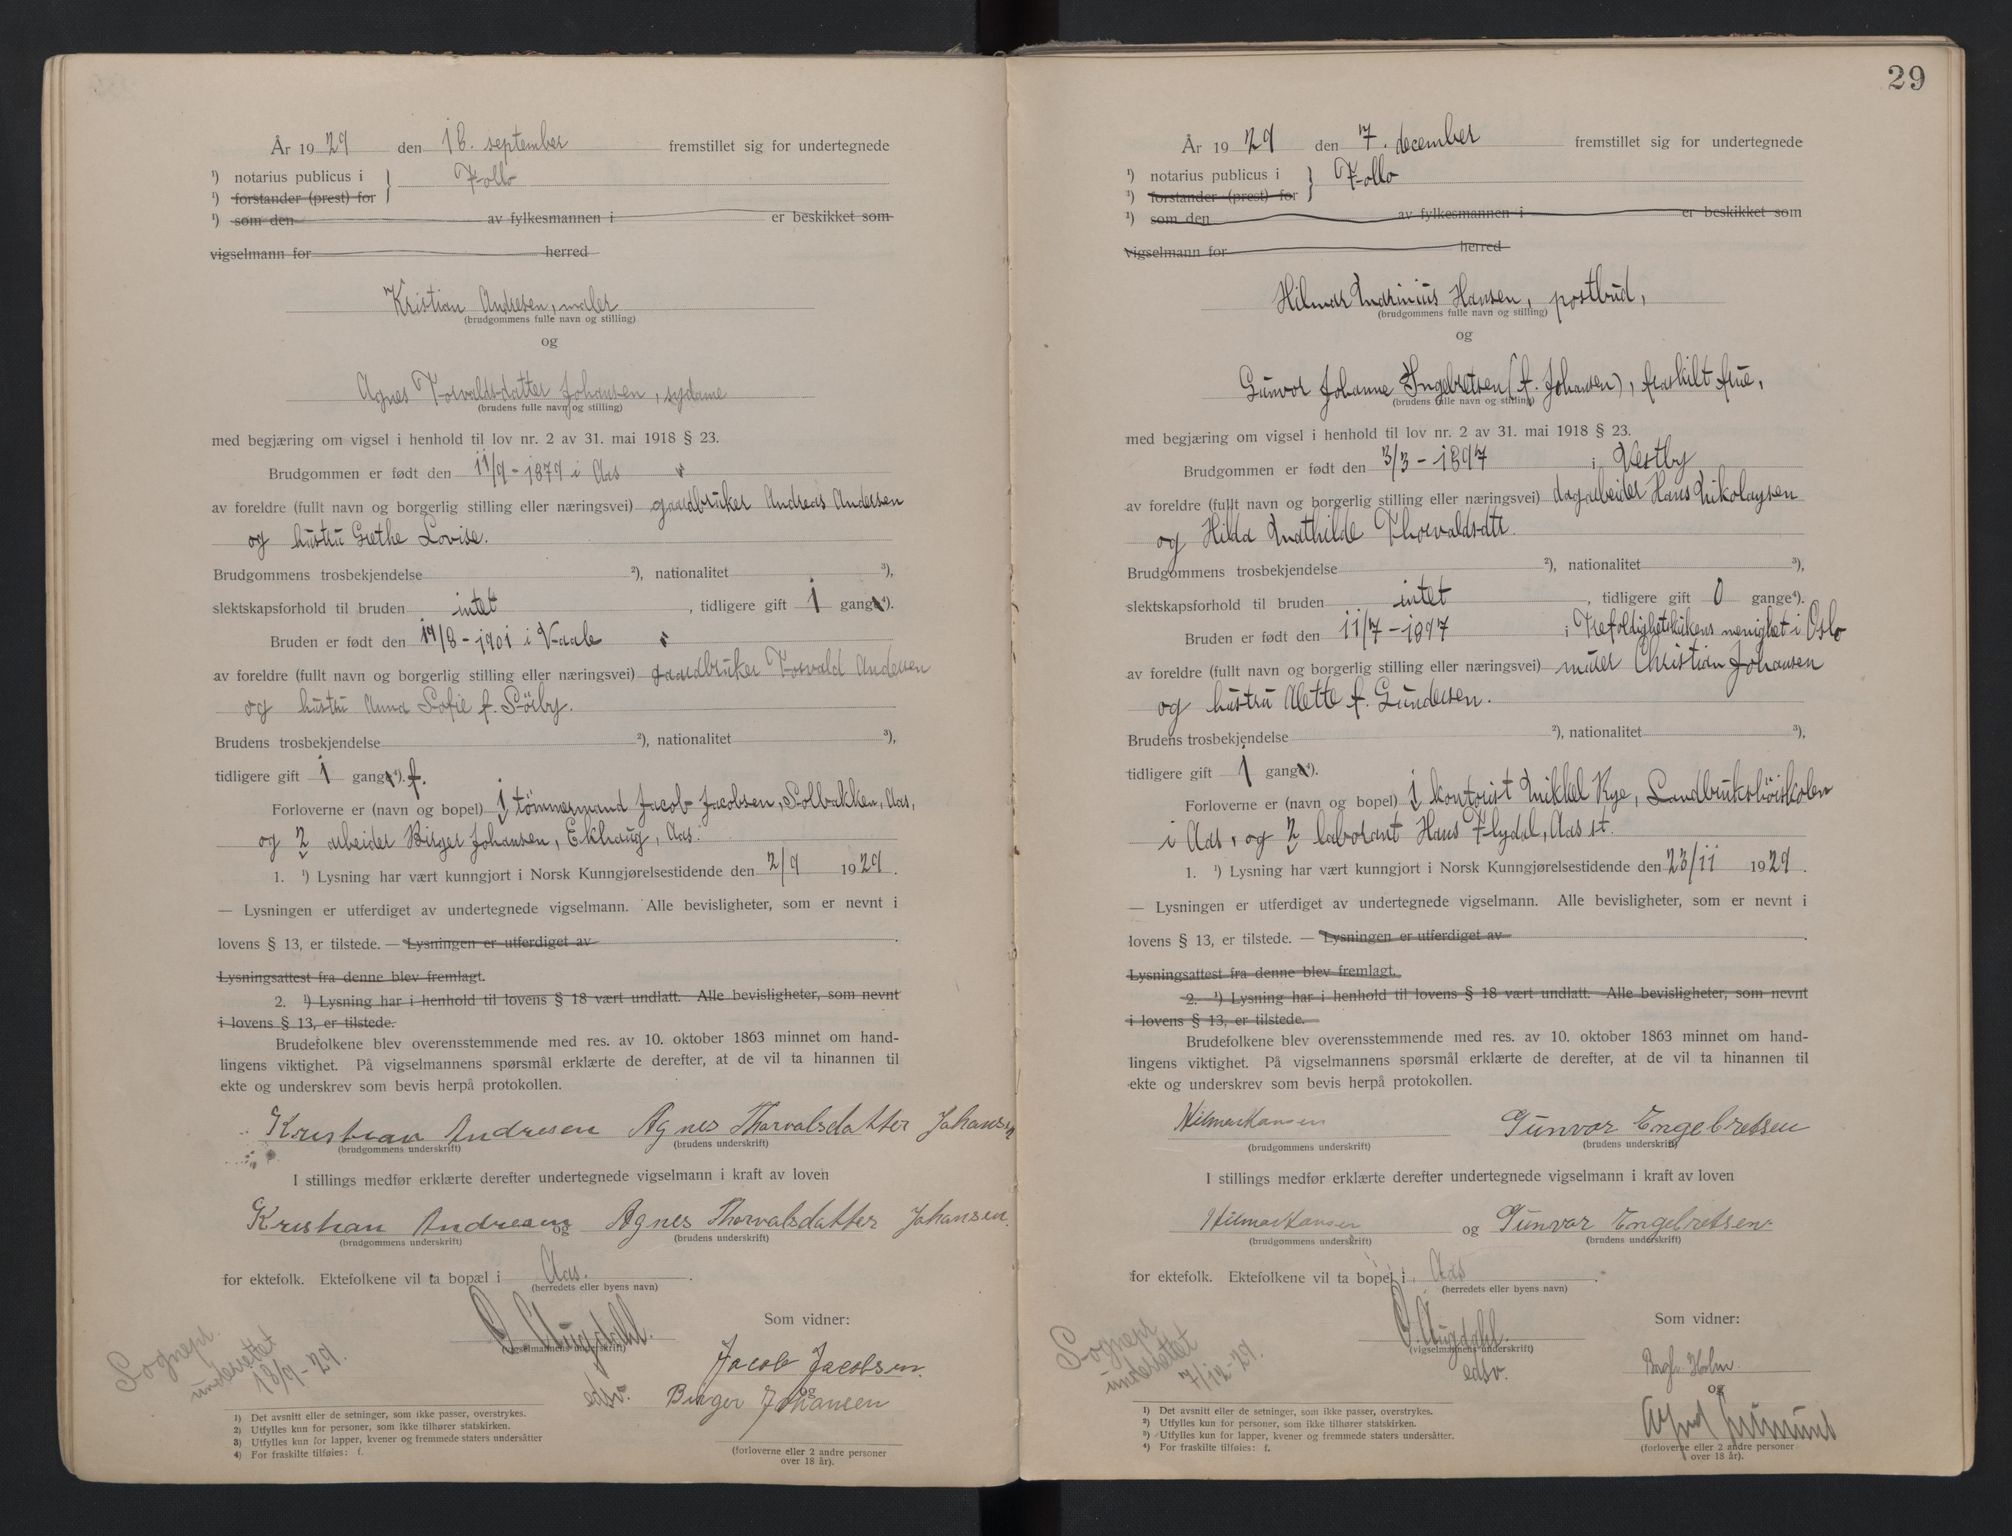 År 1929 den 16. september fremstillet sig for undertegnede
¹) notarius publicus i } Follo
¹) forstander (prest) for
¹) som den av fylkesmannen i er beskikket som
vigselmann for herred
Kristian Andresen, maler
(brudgommens fulle navn og stilling)
og
Agnes Torvaldsdatter Johansen, sydame
(brudens fulle navn og stilling)
med begjæring om vigsel i henhold til lov nr. 2 av 31. mai 1918 § 23.
Brudgommen er født den 11/9 - 1879 i Aas
av foreldre (fullt navn og borgerlig stilling eller næringsvei) gaardbruker Andreas Andersen
og hustru Grethe Lovise.
Brudgommens trosbekjendelse ²), nationalitet ³),
slektskapsforhold til bruden intet, tidligere gift 1 gang ⁴).
Bruden er født den 19/8 - 1901 i Vaale
av foreldre (fullt navn og borgerlig stilling eller næringsvei) gaardbruker Torvald Andersen
og hustru Anna Sofie f. Sörby.
Brudens trosbekjendelse ²), nationalitet ³),
tidligere gift 1 gang ⁴). f.
Forloverne er (navn og bopel) 1 tömmermand Jacob Jacobsen, Solbakken, Aas,
og 2 arbeider Birger Johansen, Ekhaug, Aas.
1. ¹) Lysning har vært kunngjort i Norsk Kunngjørelsestidende den 2/9 1929.
— Lysningen er utferdiget av undertegnede vigselmann. Alle bevisligheter, som er nevnt i
lovens § 13, er tilstede. — Lysningen er utferdiget av
Lysningsattest fra denne blev fremlagt.
2. ¹) Lysning har i henhold til lovens § 18 vært undlatt. Alle bevisligheter, som nevnt
i lovens § 13, er tilstede.
Brudefolkene blev overensstemmende med res. av 10. oktober 1863 minnet om hand-
lingens viktighet. På vigselmannens spørsmål erklærte de derefter, at de vil ta hinannen til
ekte og underskrev som bevis herpå protokollen.
Kristian Andresen Agnes Thorvalsdatter Johansen
(brudgommens underskrift) (brudens underskrift)
I stillings medfør erklærte derefter undertegnede vigselmann i kraft av loven
Kristian Andresen og Agnes Thorvalsdatter Johansen.
(brudgommens underskrift) (brudens underskrift)
for ektefolk. Ektefolkene vil ta bopæl i Aas.
(herredets eller byens navn)
Som vidner:
O. Augdahl.
(vigselmannens underskrift)
edsv.
Jacob Jacobsen.
og
Birger Johansen
(forloverne eller 2 andre personer
over 18 år).
Sognepr.
underrettet
18/9 - 29.
1) Det avsnitt eller de setninger, som ikke passer, overstrykes.
2) Utfylles kun for personer, som ikke tilhører statskirken.
3) Utfylles kun for lapper, kvener og fremmede staters undersåtter
4) For fraskilte tilføies: f.
29
År 1929 den 7. december fremstillet sig for undertegnede
¹) notarius publicus i } Follo
¹) forstander (prest) for
¹) som den av fylkesmannen i er beskikket som
vigselmann for herred
Hilmar Marinius Hansen, postbud,
(brudgommens fulle navn og stilling)
og
Gunvor Johanne Ingebretsen (f. Johansen), fraskilt frue,
(brudens fulle navn og stilling)
med begjæring om vigsel i henhold til lov nr. 2 av 31. mai 1918 § 23.
Brudgommen er født den 3/3 - 1897 i Vestby
av foreldre (fullt navn og borgerlig stilling eller næringsvei) dagarbeider Hans Nikolaysen
og Hilda Mathilde Thorvaldsdtr.
Brudgommens trosbekjendelse ²), nationalitet ³),
slektskapsforhold til bruden intet, tidligere gift 0 gange ⁴).
Bruden er født den 11/7 - 1897 i Trefoldighetskirkens menighet i Oslo
av foreldre (fullt navn og borgerlig stilling eller næringsvei) murer Christian Johansen
og hustru Alette f. Gundersen.
Brudens trosbekjendelse ²), nationalitet ³),
tidligere gift 1 gang ⁴).
Forloverne er (navn og bopel) 1 kontorist Mikkel Rye, Landbrukshöiskolen
i Aas, og 2 laborant Hans Flydal, Aas st.
1. ¹) Lysning har vært kunngjort i Norsk Kunngjørelsestidende den 23/11 1929.
— Lysningen er utferdiget av undertegnede vigselmann. Alle bevisligheter, som er nevnt i
lovens § 13, er tilstede. — Lysningen er utferdiget av
Lysningsattest fra denne blev fremlagt.
2. ¹) Lysning har i henhold til lovens § 18 vært undlatt. Alle bevisligheter, som nevnt
i lovens § 13, er tilstede.
Brudefolkene blev overensstemmende med res. av 10. oktober 1863 minnet om hand-
lingens viktighet. På vigselmannens spørsmål erklærte de derefter, at de vil ta hinannen til
ekte og underskrev som bevis herpå protokollen.
Hilmar Hansen Gunvor Engebretsen
(brudgommens underskrift) (brudens underskrift)
I stillings medfør erklærte derefter undertegnede vigselmann i kraft av loven
Hilmar Hansen og Gunvor Engebretsen
(brudgommens underskrift) (brudens underskrift)
for ektefolk. Ektefolkene vil ta bopel i Aas
(herredets eller byens navn)
Som vidner:
O. Augdahl.
(vigselmannens underskrift)
edsv.
Holm.
og
(forloverne eller 2 andre personer
over 18 år).
Sognepr
underrettet
7/12 - 29.
1) Det avsnitt eller de setninger, som ikke passer, overstrykes.
2) Utfylles kun for personer, som ikke tilhører statskirken.
3) Utfylles kun for lapper, kvener og fremmede staters undersåtter.
4) For fraskilte tilføies: f.